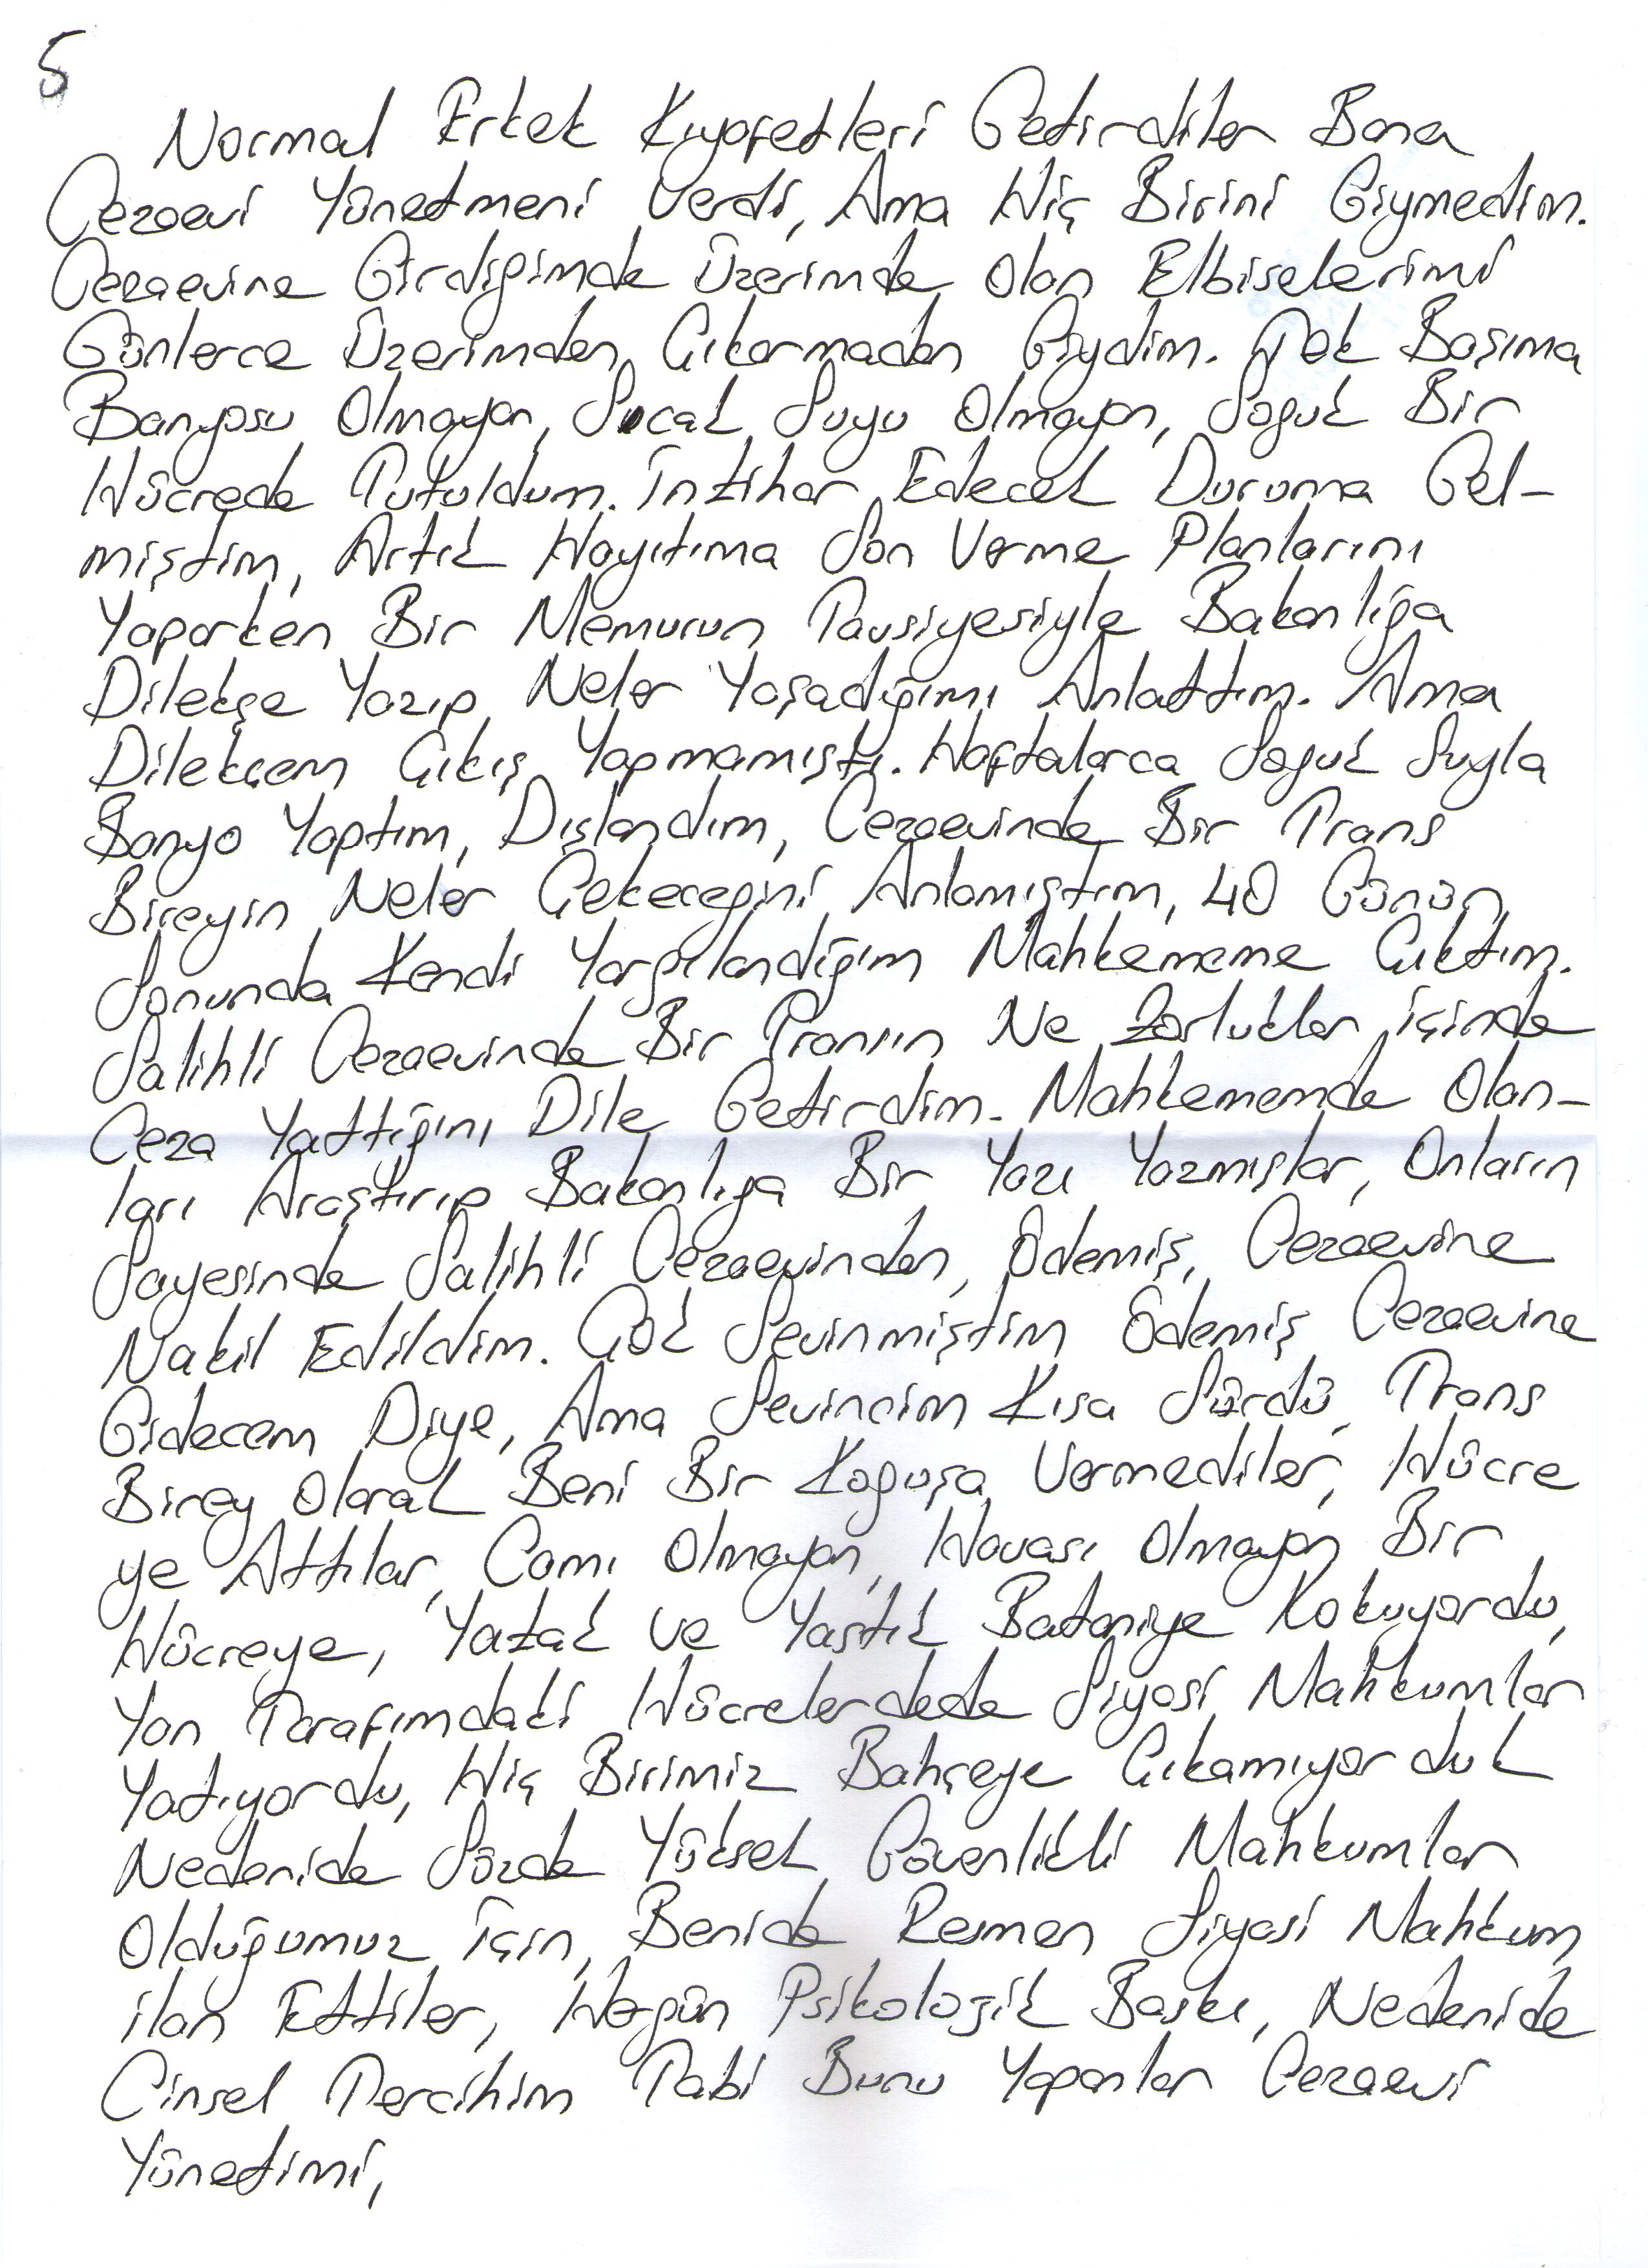 5
Normal Erkek Kıyafetleri Getirdiler Bana
Cezaevi Yönetmeni Verdi, Ama Hiç Birini Giymedim.
Cezaevine Girdiğimde Üzerimde Olan Elbiselerimi
Günlerce Üzerimden Çıkarmadan Giydim. Tek Başıma
Banyosu Olmayan, Sıcak Suyu Olmayan, Soguk Bir
Hücrede Tutuldum. İntihar Edecek Duruma Gel-
miştim, Artık Hayıtıma Son Verme Planlarını
Yaparken Bir Memurun Tavsiyesiyle Bakanlığa
Dilekçe Yazıp Neler Yaşadığımı Anlattım. Ama
Dilekçem Çıkış Yapmamıştı. Haftalarca Soguk Suyla
Banyo Yaptım, Dışlandım, Cezaevinde Bir Trans
Bireyin Neler Çekecegini Anlamıştım, 40 Günün
Sonunda Kendi Yargılandığım Mahkememe Çıktım.
Salihli Cezaevinde Bir Transın Ne Zorluklar İçinde
Ceza Yattığını Dile Getirdim. Mahkememde Olan-
ları Araştırıp Bakanlıga Bir Yazı Yazmışlar, Onların
Sayesinde Salihli Cezaevinden, Ödemiş, Cezaevine
Nakil Edildim. Çok Sevinmiştim Ödemiş Cezaevine
Gidecem Diye, Ama Sevincim Kısa Sürdü, Trans
Birey Olarak Beni Bir Koguşa Vermediler, Hücre
ye Attılar, Camı Olmayan, Havası Olmayan Bir
Hücreye, Yatak ve Yastık Bataniye Kokuyordu,
Yan Tarafımdaki Hücrelerdede Siyasi Mahkumlar
Yatıyordu, Hiç Birimiz Bahçeye Çıkamıyorduk
Nedenide Sözde Yüksek Güvenlikli Mahkumlar
Olduğumuz İçin, Benide Resmen Siyasi Mahkum
ilan Ettiler, Hergün Psikolojik Baskı, Nedenide
Cinsel Tercihim Tabi Bunu Yapanlar Cezaevi
Yönetimi,